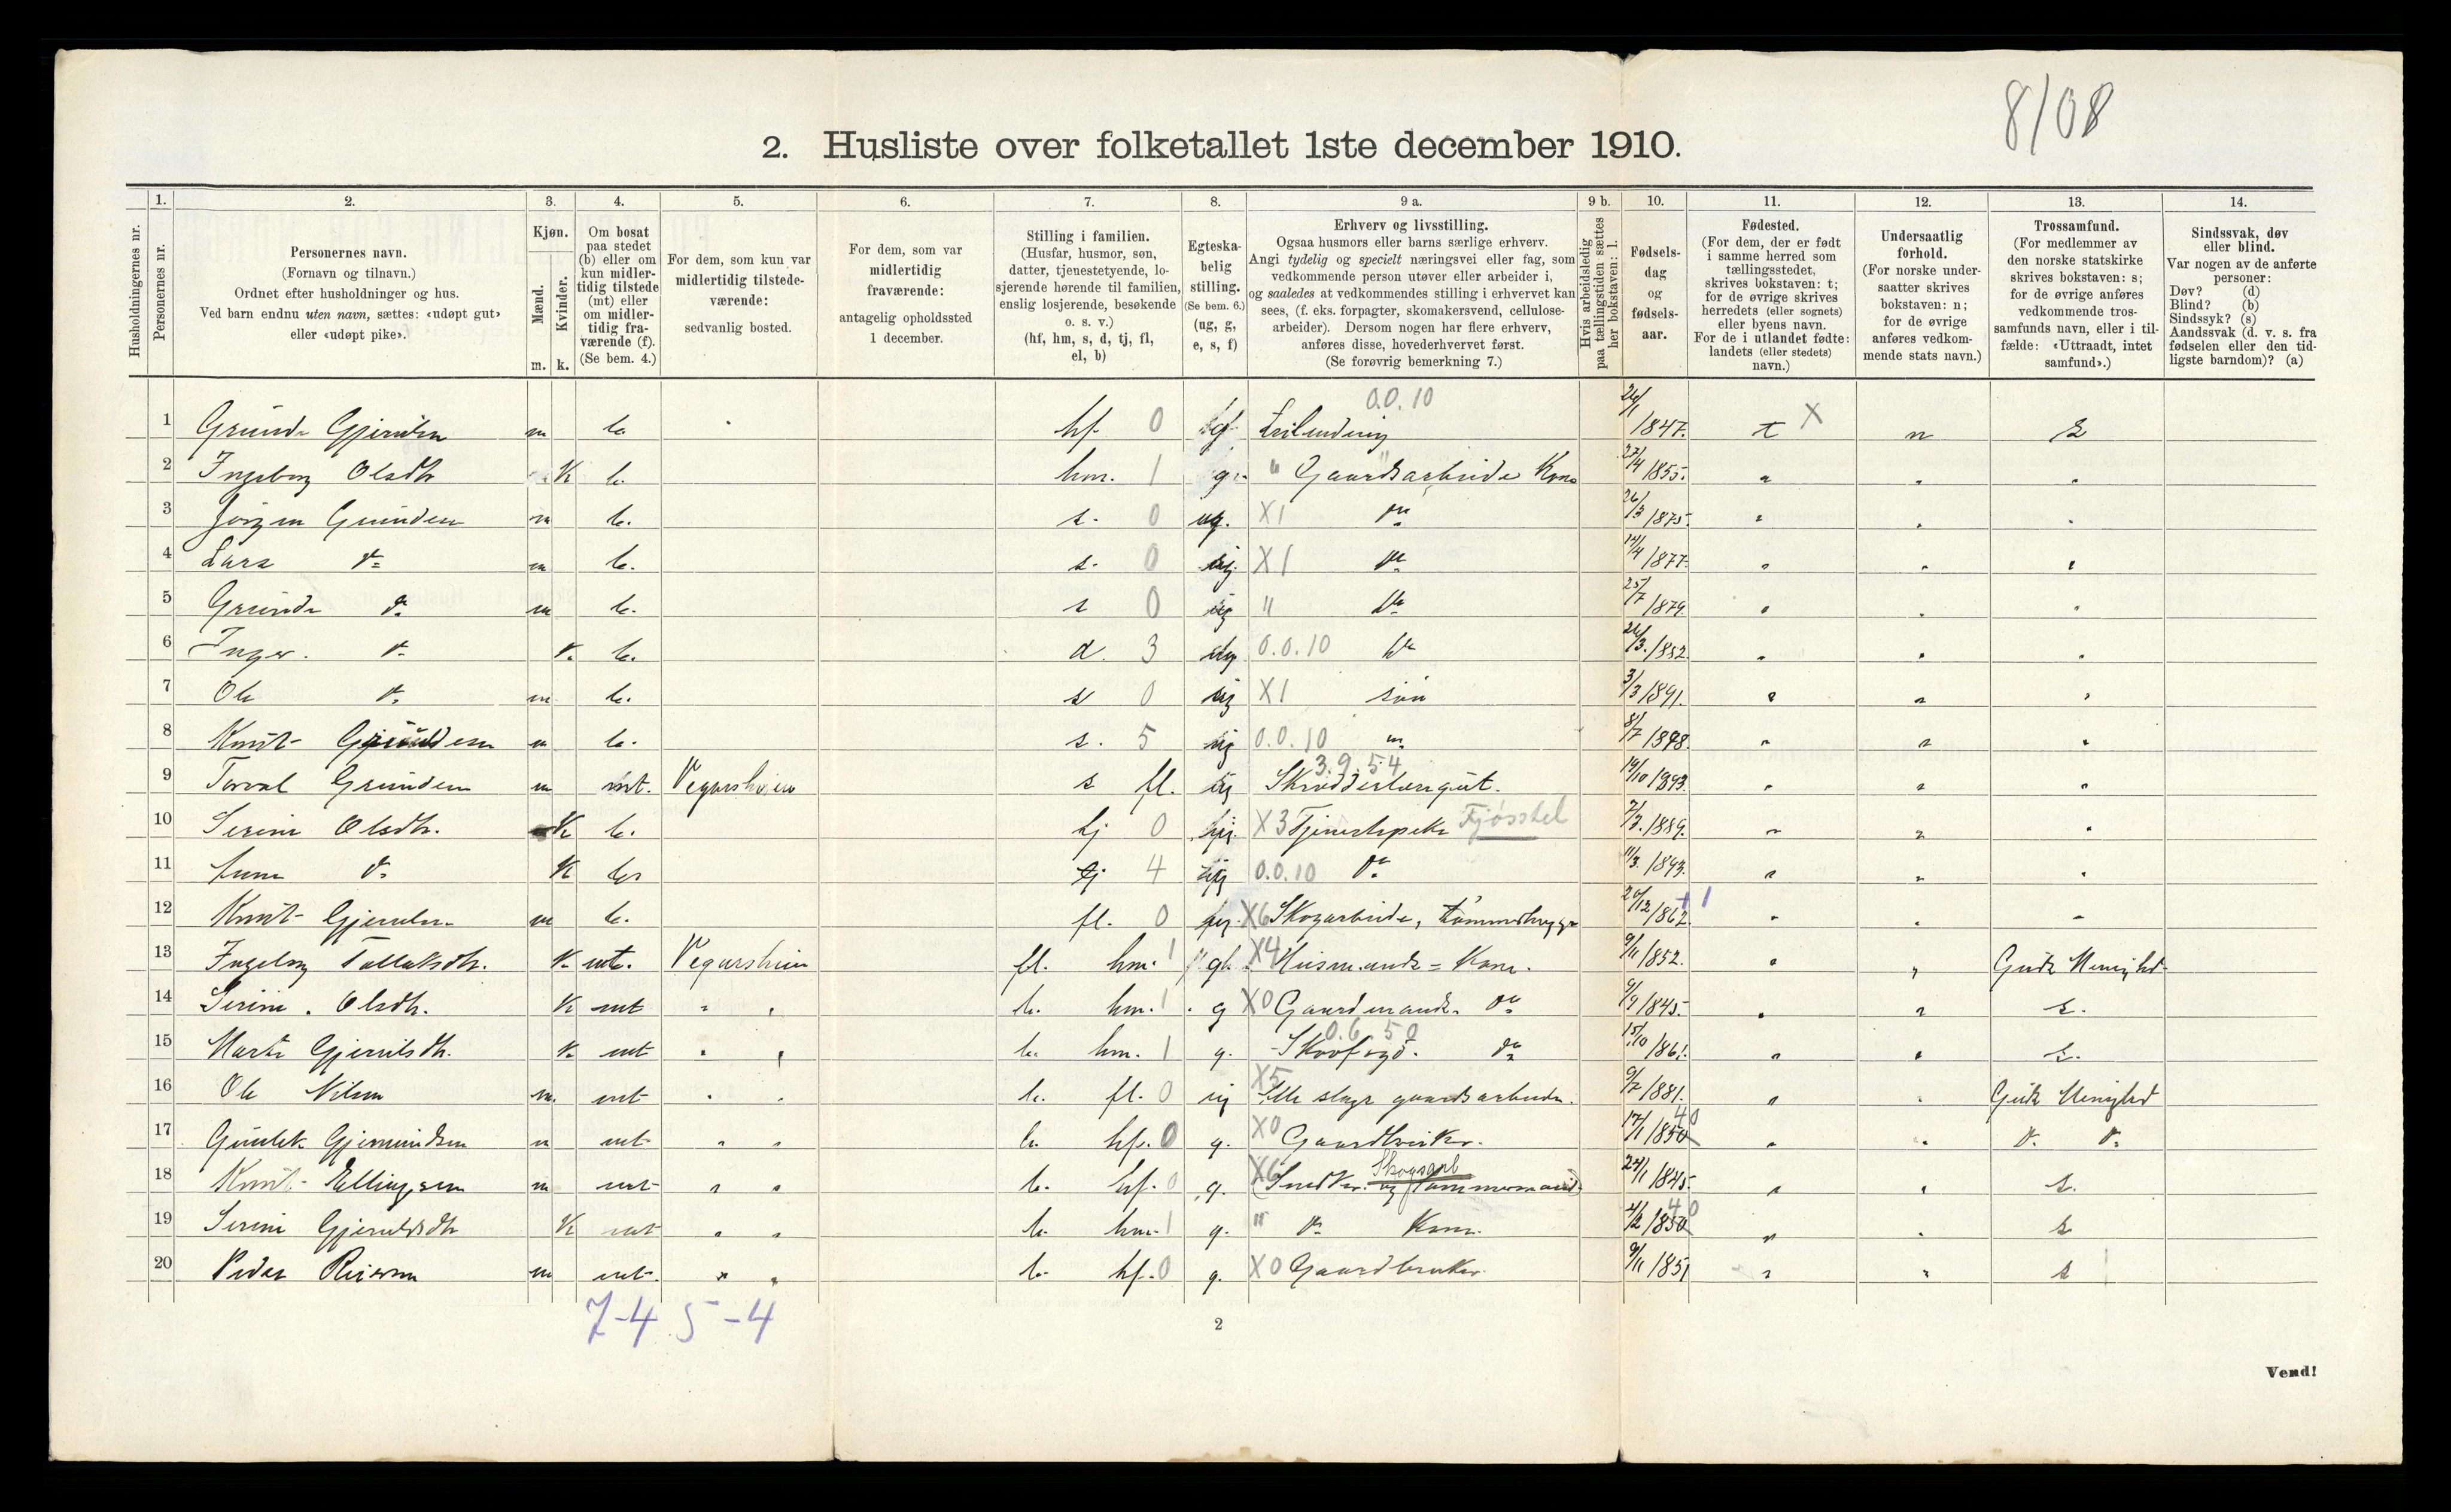 8/08
2. Husliste over folketallet 1ste december 1910.
Husholdningernes nr.
1. Personernes nr.
2. Personernes navn.
(Fornavn og tilnavn.)
Ordnet efter husholdninger og hus.
Ved barn endnu uten navn, sættes: «udøpt gut»
eller «udøpt pike».
3. Kjøn.
Mænd. m.
Kvinder. k.
4. Om bosat
paa stedet
(b) eller om
kun midler-
tidig tilstede
(mt) eller
om midler-
tidig fra-
værende (f).
(Se bem. 4.)
5. For dem, som kun var
midlertidig tilstede-
værende:
sedvanlig bosted.
6. For dem, som var
midlertidig
fraværende:
antagelig opholdssted
1 december.
7. Stilling i familien.
(Husfar, husmor, søn,
datter, tjenestetyende, lo-
sjerende hørende til familien,
enslig losjerende, besøkende
o. s. v.)
(hf, hm, s, d, tj, fl,
el, b)
8. Egteska-
belig
stilling.
(Se bem. 6.)
(ug, g,
e, s, f)
9 a. Erhverv og livsstilling.
Ogsaa husmors eller barns særlige erhverv.
Angi tydelig og specielt næringsvei eller fag, som
vedkommende person utøver eller arbeider i,
og saaledes at vedkommendes stilling i erhvervet kan
sees, (f. eks. forpagter, skomakersvend, cellulose-
arbeider). Dersom nogen har flere erhverv,
anføres disse, hovederhvervet først.
(Se forøvrig bemerkning 7.)
9 b. Hvis arbeidsledig
paa tællingstiden sættes
her bokstaven: l.
10. Fødsels-
dag
og
fødsels-
aar.
11. Fødested.
(For dem, der er født
i samme herred som
tællingsstedet,
skrives bokstaven: t;
for de øvrige skrives
herredets (eller sognets)
eller byens navn.
For de i utlandet fødte:
landets (eller stedets)
navn.)
12. Undersaatlig
forhold.
(For norske under-
saatter skrives
bokstaven: n;
for de øvrige
anføres vedkom-
mende stats navn.)
13. Trossamfund.
(For medlemmer av
den norske statskirke
skrives bokstaven: s;
for de øvrige anføres
vedkommende tros-
samfunds navn, eller i til-
fælde: «Uttraadt, intet
samfund».)
14. Sindssvak, døv
eller blind.
Var nogen av de anførte
personer:
Døv? (d)
Blind? (b)
Sindssyk? (s)
Aandssvak (d. v. s. fra
fødselen eller den tid-
ligste barndom)? (a)
0.0.10
1 m b. hf. 0 g 1847. t X n s
2 Ingeborg Olsdtr K b. hm. 1 g. " Gaardsarbeide Kone 27/4 1855. " " "
3 Jörgen Grundesen m b. s. 0 ug. X1 do 26/3 1875. " " "
4 Lars do m b. s. 0 ug X1 do 1877. " " "
5 Grunde do m b. s 0 ug " do 25/7 1879. " " "
6 Inger do K. b. d. 3 ug 0.0.10 do " " "
7 Ole do m b. s 0 ug X1 søn 3/3 1891. " " "
8 Knut m b. s. 5 ug 0.0.10 " 8/7 1898. " " "
3.9.54
9 m mt. Vegarsheien s fl. ug 14/10 1893. " " "
10 Serine Olsdtr. K b. tj 0 ug. X3 Tjenestepike Fjøsstel 1889. " " "
11 do K b. tj 4 ug 0.0.10 do 11/3. 1893. " " "
12 Knut m b. fl. 0 ug. X6 Skogarbeide, 20/12 1862. " " "
13 Ingeborg K mt. Vegarsheien fl. hm. 1 X4 Husmands Kone. 9/11 1852. " " Guds Menighed
14 Serine Olsdtr. K mt " " b. hm. 1 g X0 Gaardmands do 9/9 1845. " " s.
0.6.50
15 K mt " " b. hm. 1 g. do 15/10 1861. " " s.
16 Ole Nilsen m. mt " " b. fl. 0 ug X5 Alle slags gaardsarbeide. 9/7 1881. " " Guds Menighed
17 m mt " " b. hf. 0 g. X0 Gaardbruker. 17/1 1850 40 " " do do
18 Knut Ellingsen m mt " " b. hf. 0 g. X6 Snedker og Skogsarb Tømmermand 24/1 1845. " " s.
19 Serine K mt " " b. hm. 1 g. " do Kone. 1850 40 " " s
20 Peder m mt. " " b. hf. 0 g. X0 Gaardbruker 9/11 1851 " " s
7-4 5-4
2
Vend!